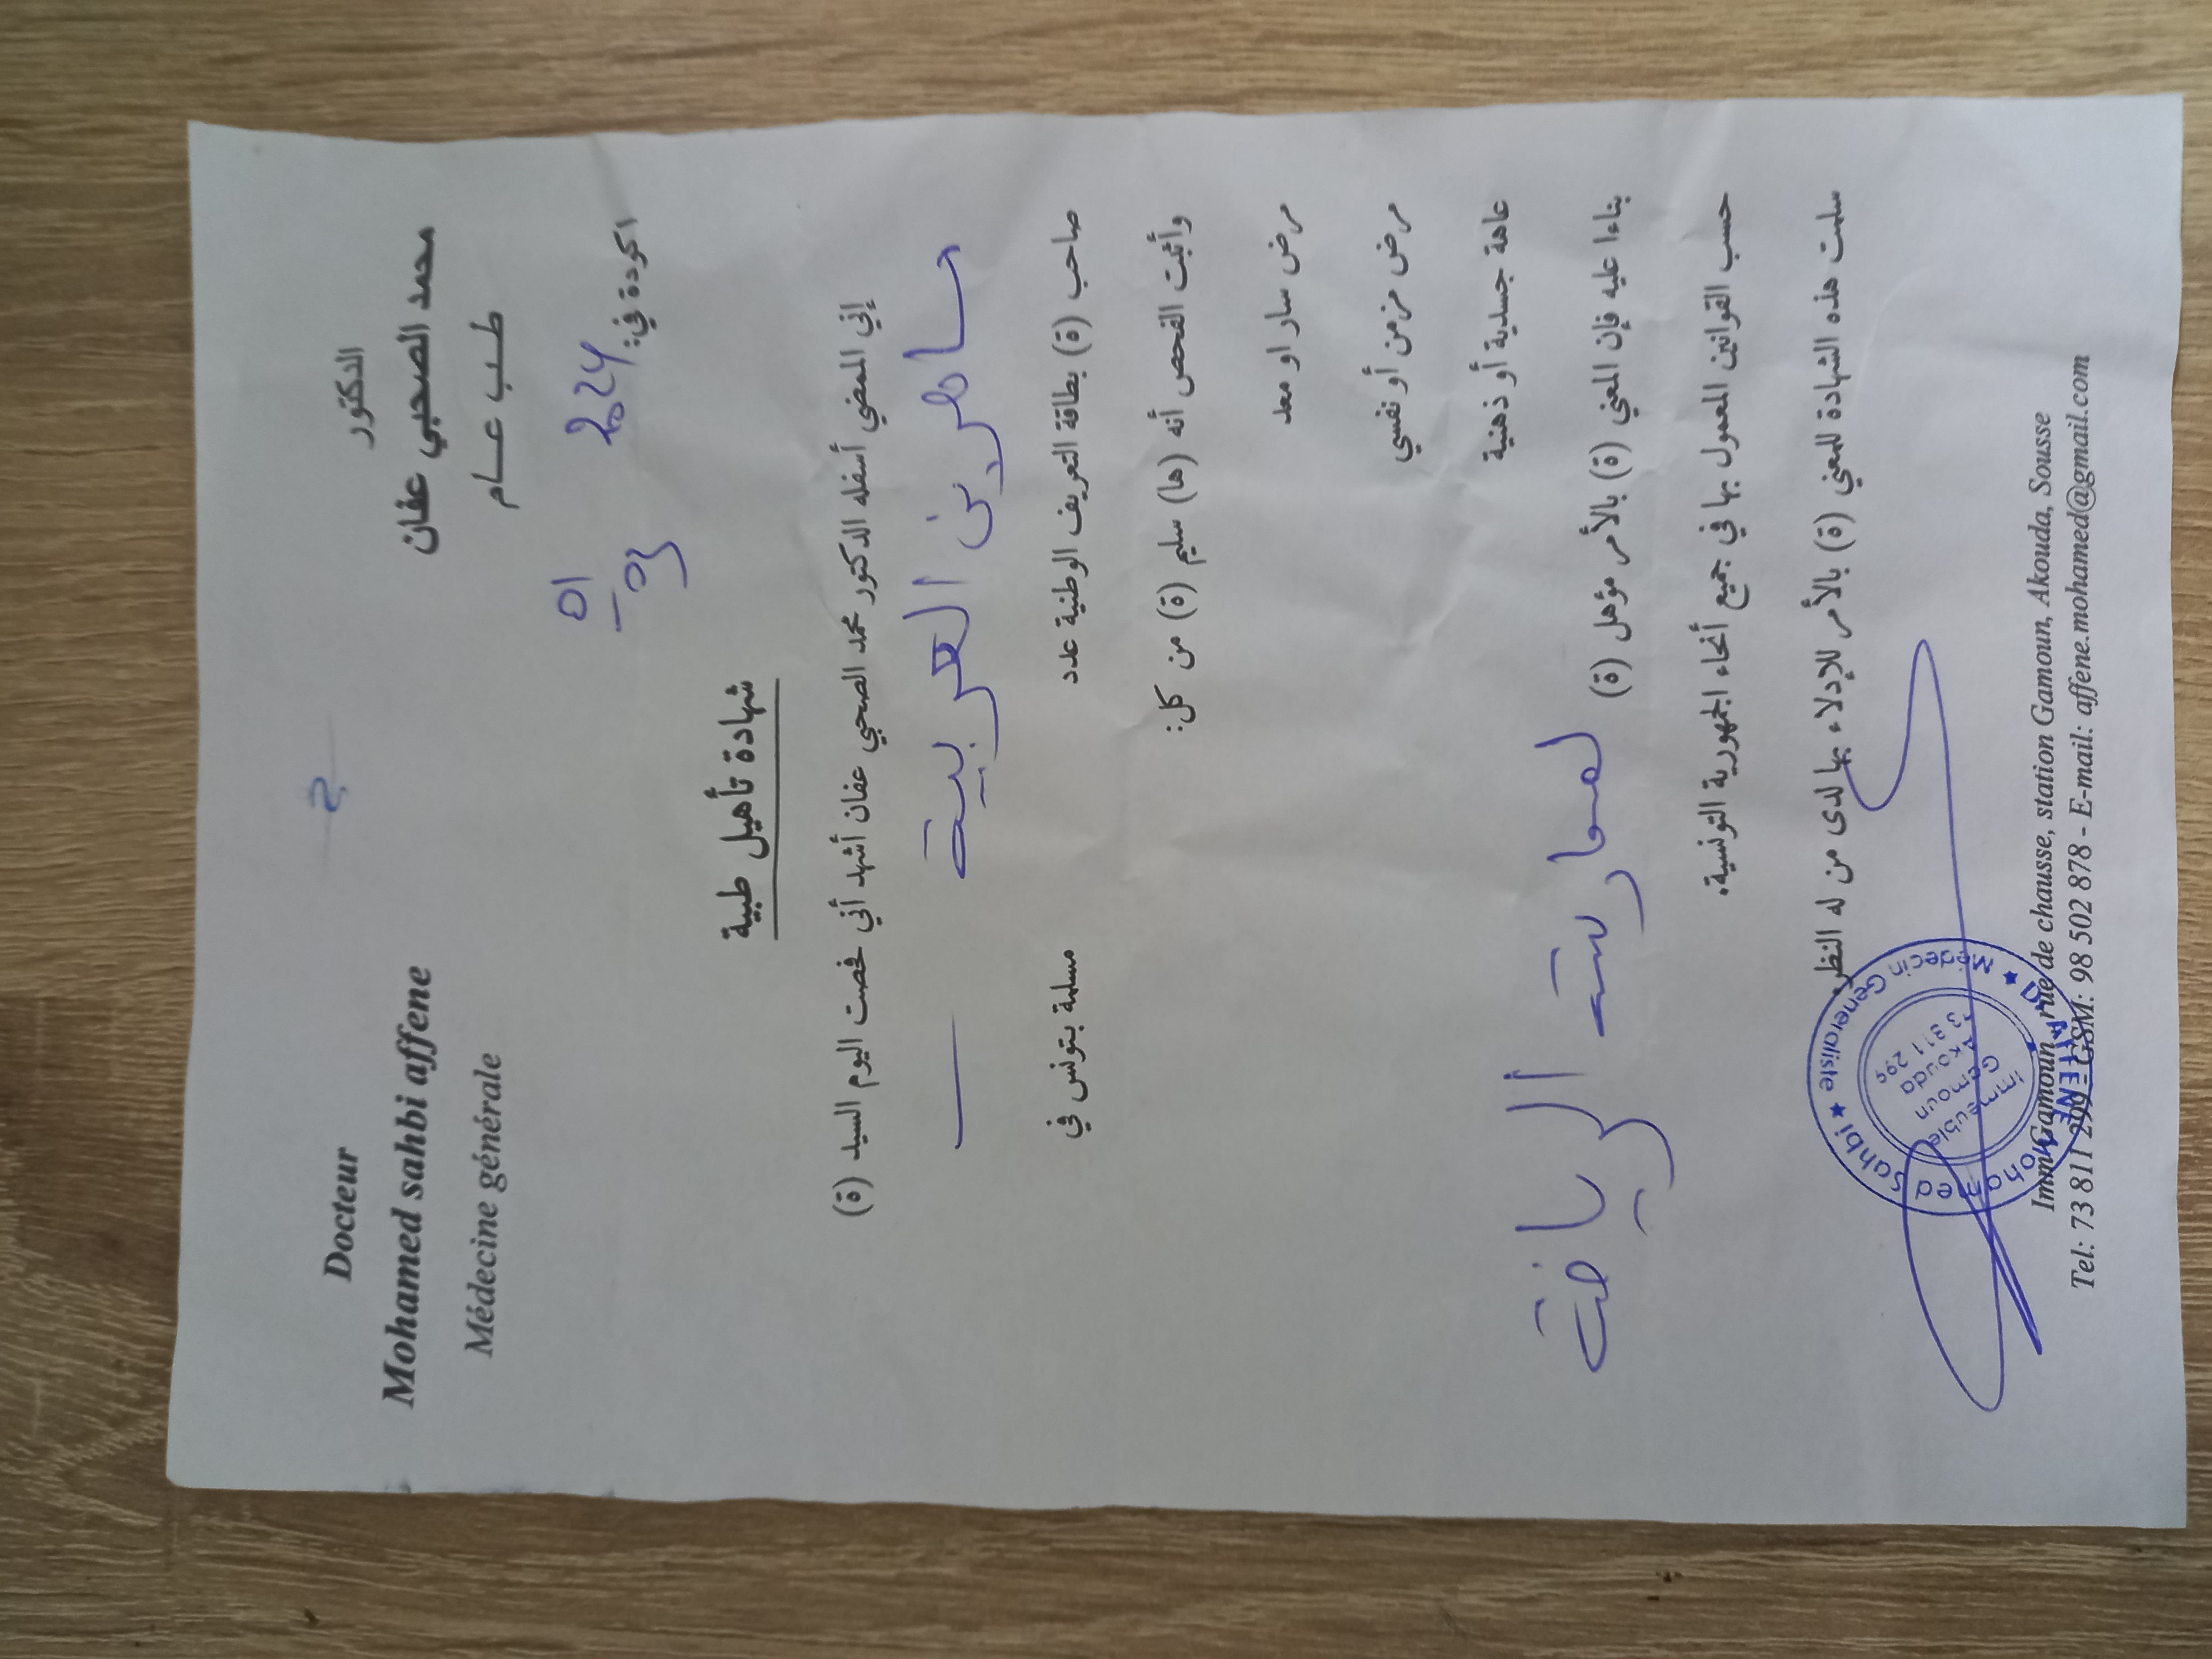 Docteur
الدكتور
Mohamed sahbi affene
محمد الصحبي عفان
Médecine générale
طب عام
اكودة في: 2024
01
03
شهادة تأهيل طبية
إني الممضي أسفله الدكتور محمد الصحبي عفان أشهد أني فحصت اليوم السيد (ة)
ماهر بن العربية
صاحب (ة) بطاقة التعريف الوطنية عدد مسلمة بتونس في
وأثبت الفحص أنه (ها) سليم (ة) من كل:
مرض سار او معد
مرض مزمن أو نفسي
عاهة جسدية أو ذهنية
بناءا عليه فإن المعني (ة) بالأمر مؤهل (ة) لممارسة الرياضة
حسب القوانين المعمول بها في جميع أنحاء الجمهورية التونسية.
سلمت هذه الشهادة للمعني (ة) بالأمر للإدلاء بها لدى من له النظر.
Dr. AFFENE Mohamed Sahbi ★ Médecin Generaliste ★
Immeuble
Gamoun
Akouda
73 811 299
Imm Gamoun, rue de chausse, station Gamoun, Akouda, Sousse
Tel: 73 811 299 - GSM: 98 502 878 - E-mail: affene.mohamed@gmail.com